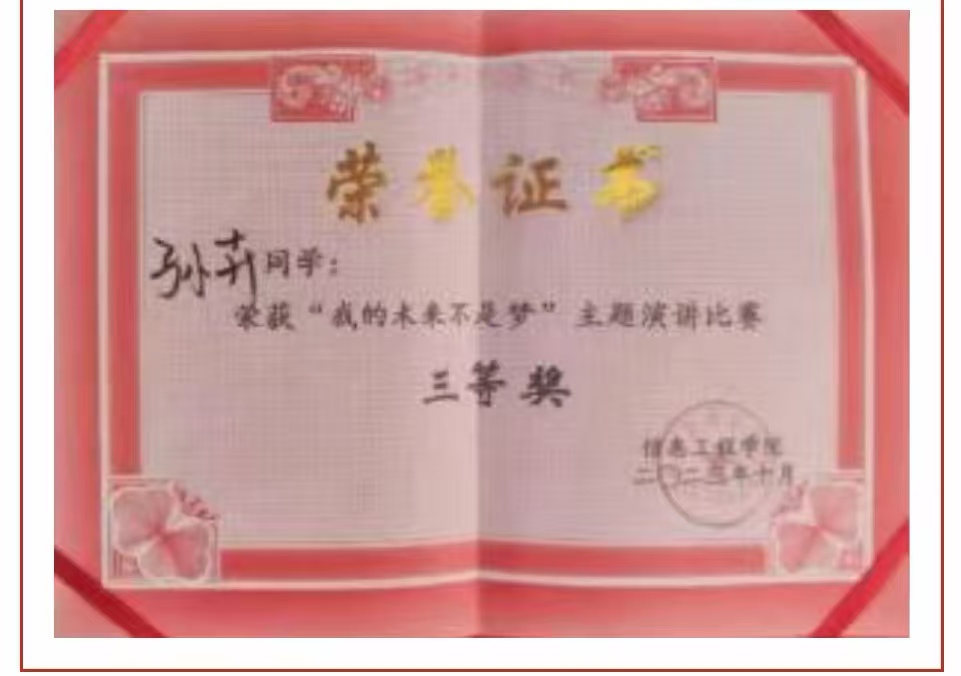 荣誉证书
孙卉同学：
荣获“我的未来不是梦”主题演讲比赛
三等奖
信息工程学院
二〇二三年十月